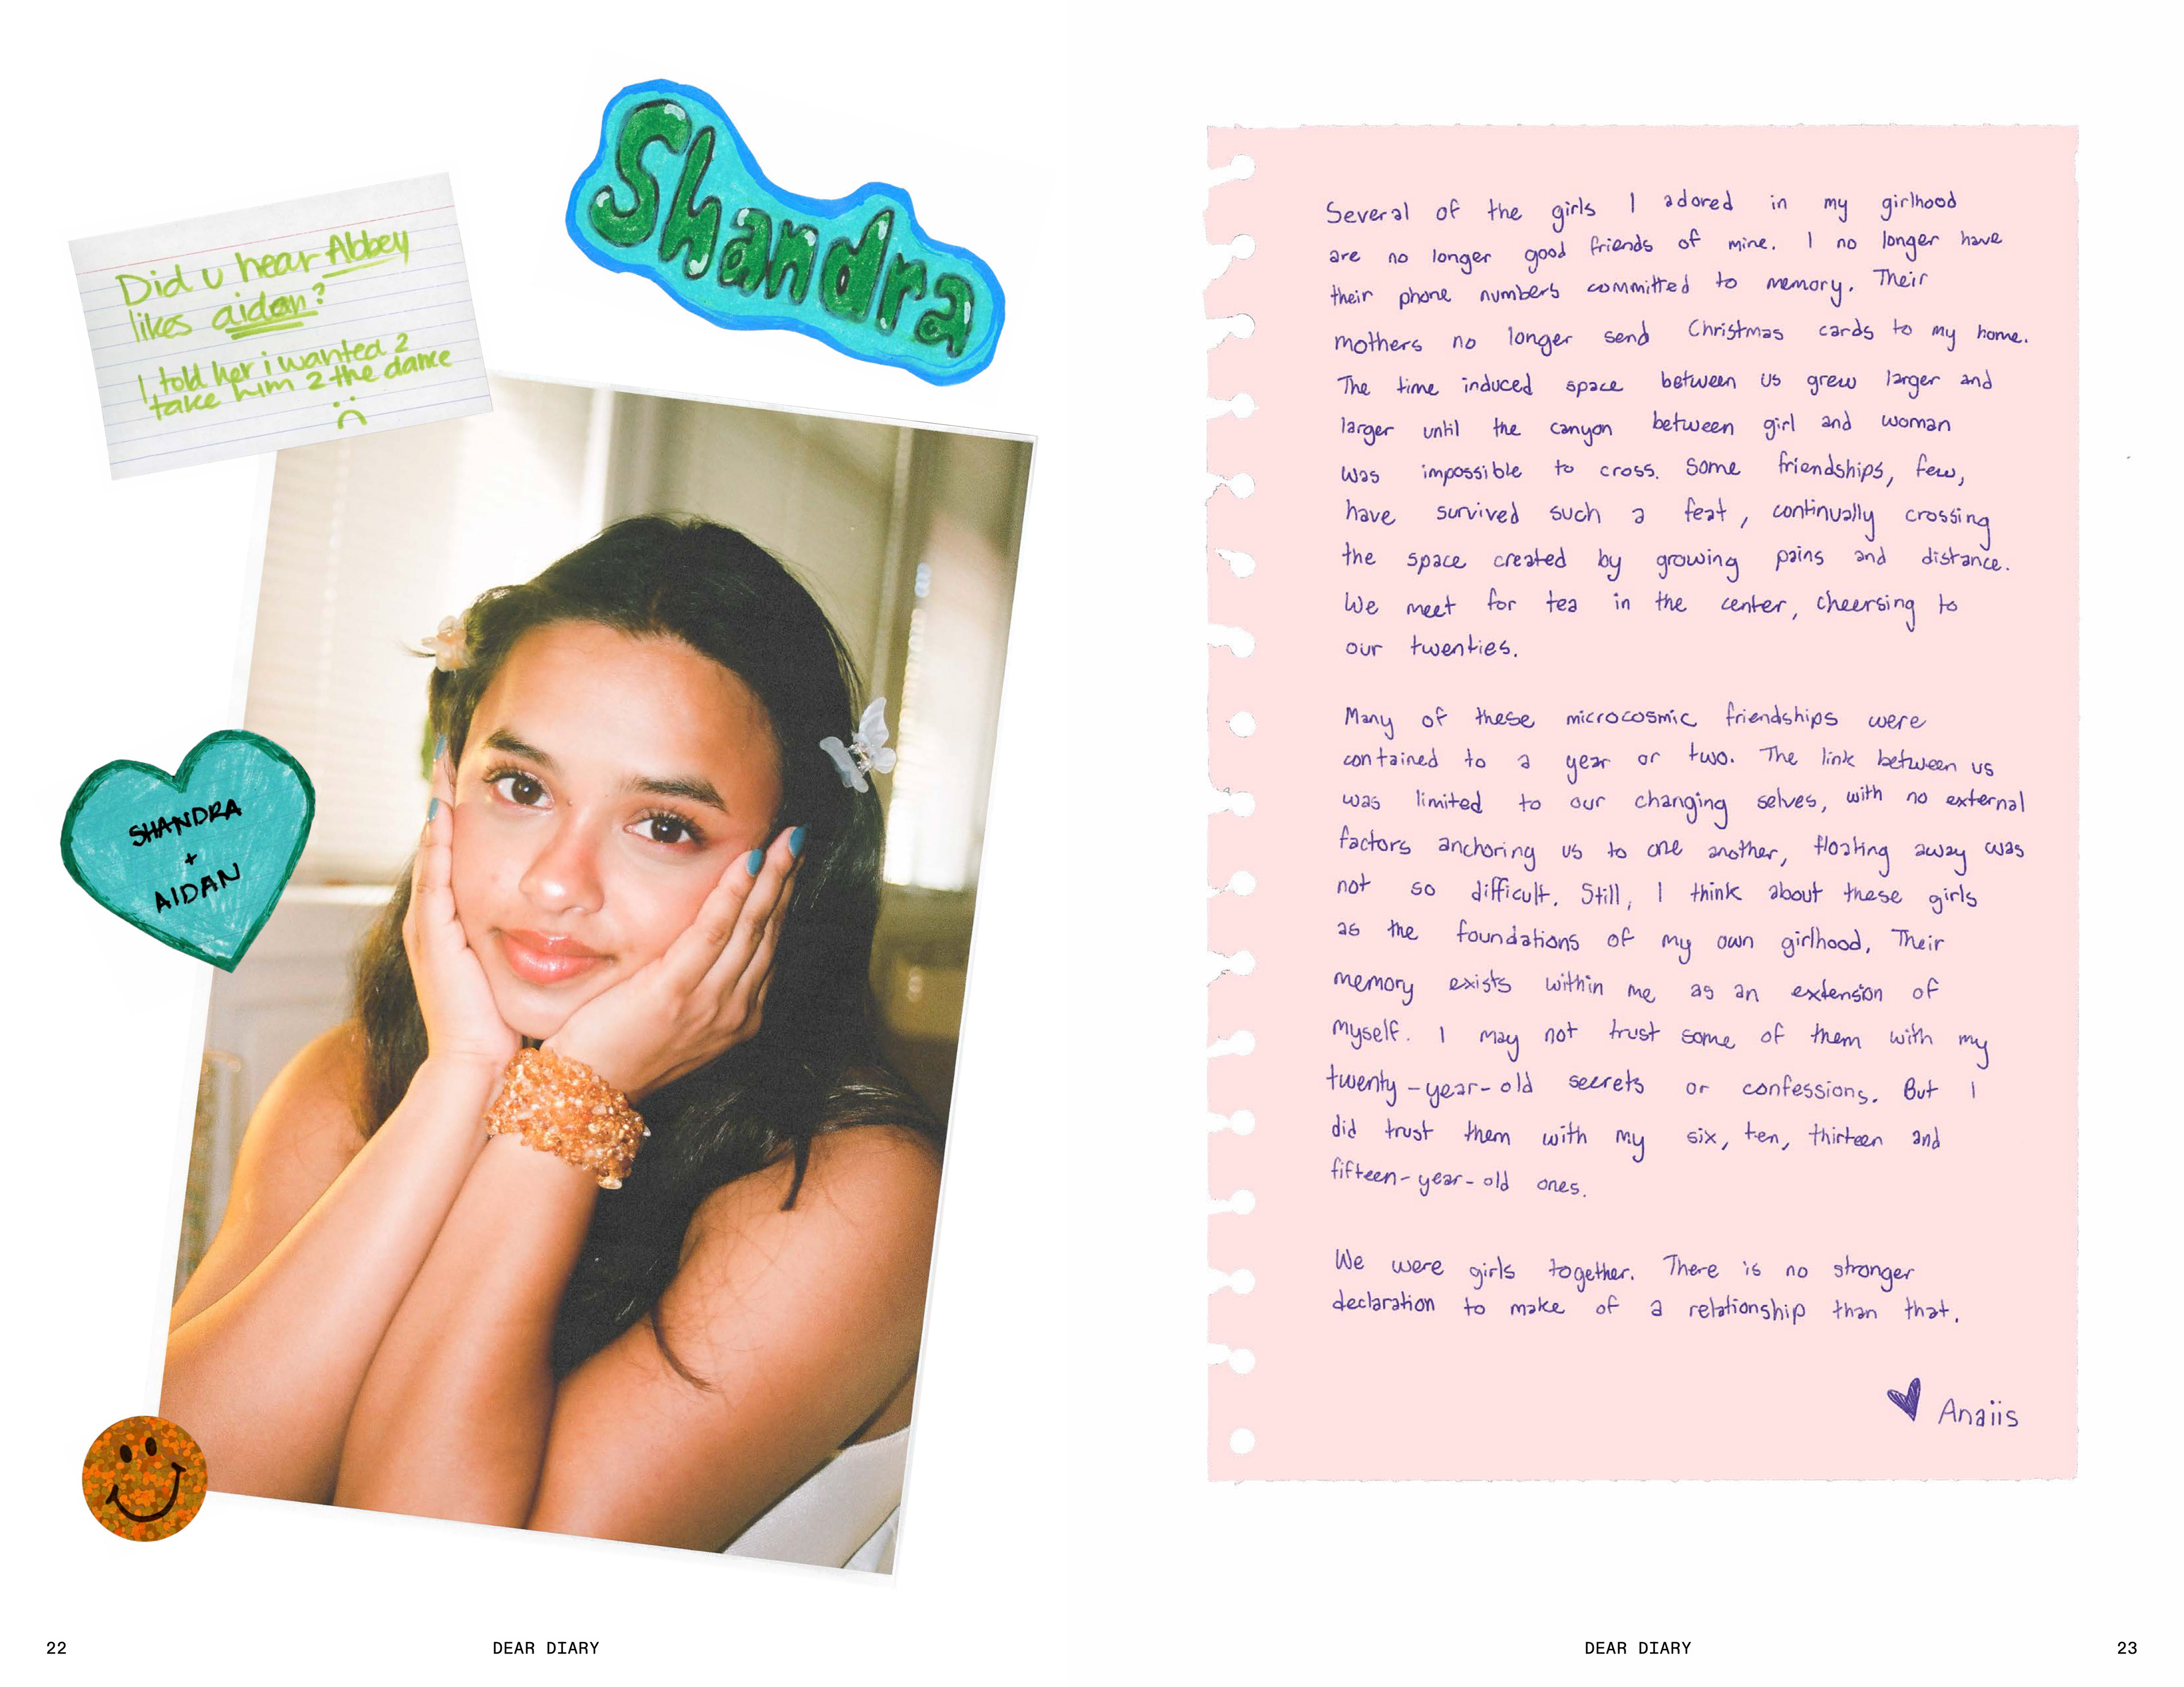 Shandra
Did u hear Abbey
likes aidan?
I told her i wanted 2
take him 2 the dance
:(
SHANDRA
+
AIDAN
22
DEAR DIARY
Several of the girls I adored in my girlhood
are no longer good friends of mine. I no longer have
their phone numbers committed to memory. Their
mothers no longer send Christmas cards to my home.
The time induced space between us grew larger and
larger until the canyon between girl and woman
was impossible to cross. Some friendships, few,
have survived such a feat, continually crossing
the space created by growing pains and distance.
We meet for tea in the center, cheersing to
our twenties.
Many of these microcosmic friendships were
contained to a year or two. The link between us
was limited to our changing selves, with no external
factors anchoring us to one another, floating away was
not so difficult. Still, I think about these girls
as the foundations of my own girlhood. Their
memory exists within me as an extension of
myself. I may not trust some of them with my
twenty-year-old secrets or confessions. But I
did trust them with my six, ten, thirteen and
fifteen-year-old ones.
We were girls together. There is no stronger
declaration to make of a relationship than that.
Anaiis
DEAR DIARY
23